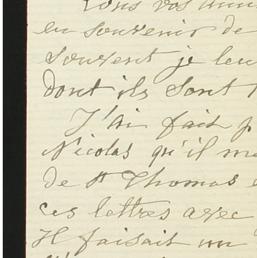 Tous vos
en souvenir de
souvent je leu
dont ils sont
J'ai fait p
Nicolas qu'il m
de St Thomas e
ces lettres avec
Il faisait un